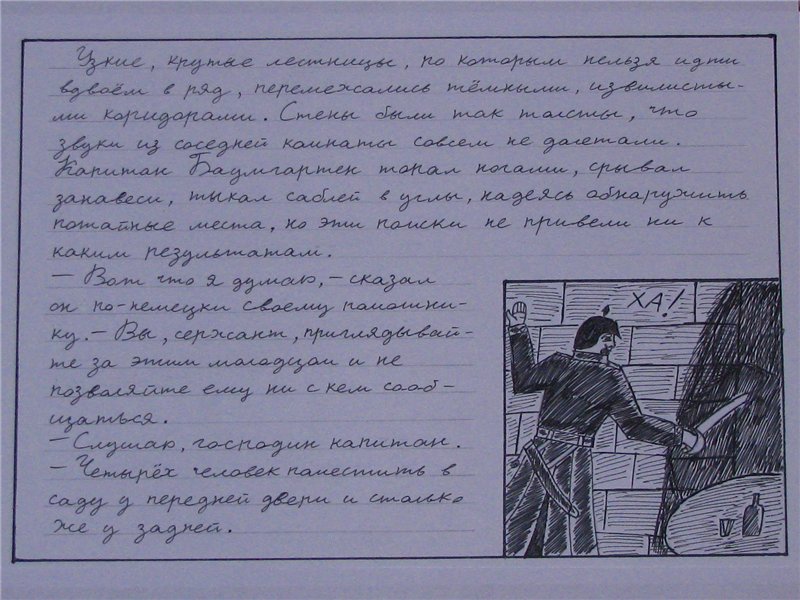 Узкие, крутые лестницы, по которым нельзя идти
вдвоём в ряд, перемежались тёмными, извилисты-
ми коридорами. Стены были так толсты, что
звуки из соседней комнаты совсем не долетали.
Капитан Баумгартен топал ногами, срывал
занавеси, тыкал саблей в углы, надеясь обнаружить
потайные места, но эти поиски не привели ни к
каким результатам.
— Вот что я думаю, — сказал
он по-немецки своему помошни-
ку. — Вы, сержант, приглядывай-
те за этим молодцом и не
позволяйте ему ни с кем сооб-
щаться.
— Слушаю, господин капитан.
— Четырёх человек поместить в
саду у передней двери и столько
же у задней.
ХА!